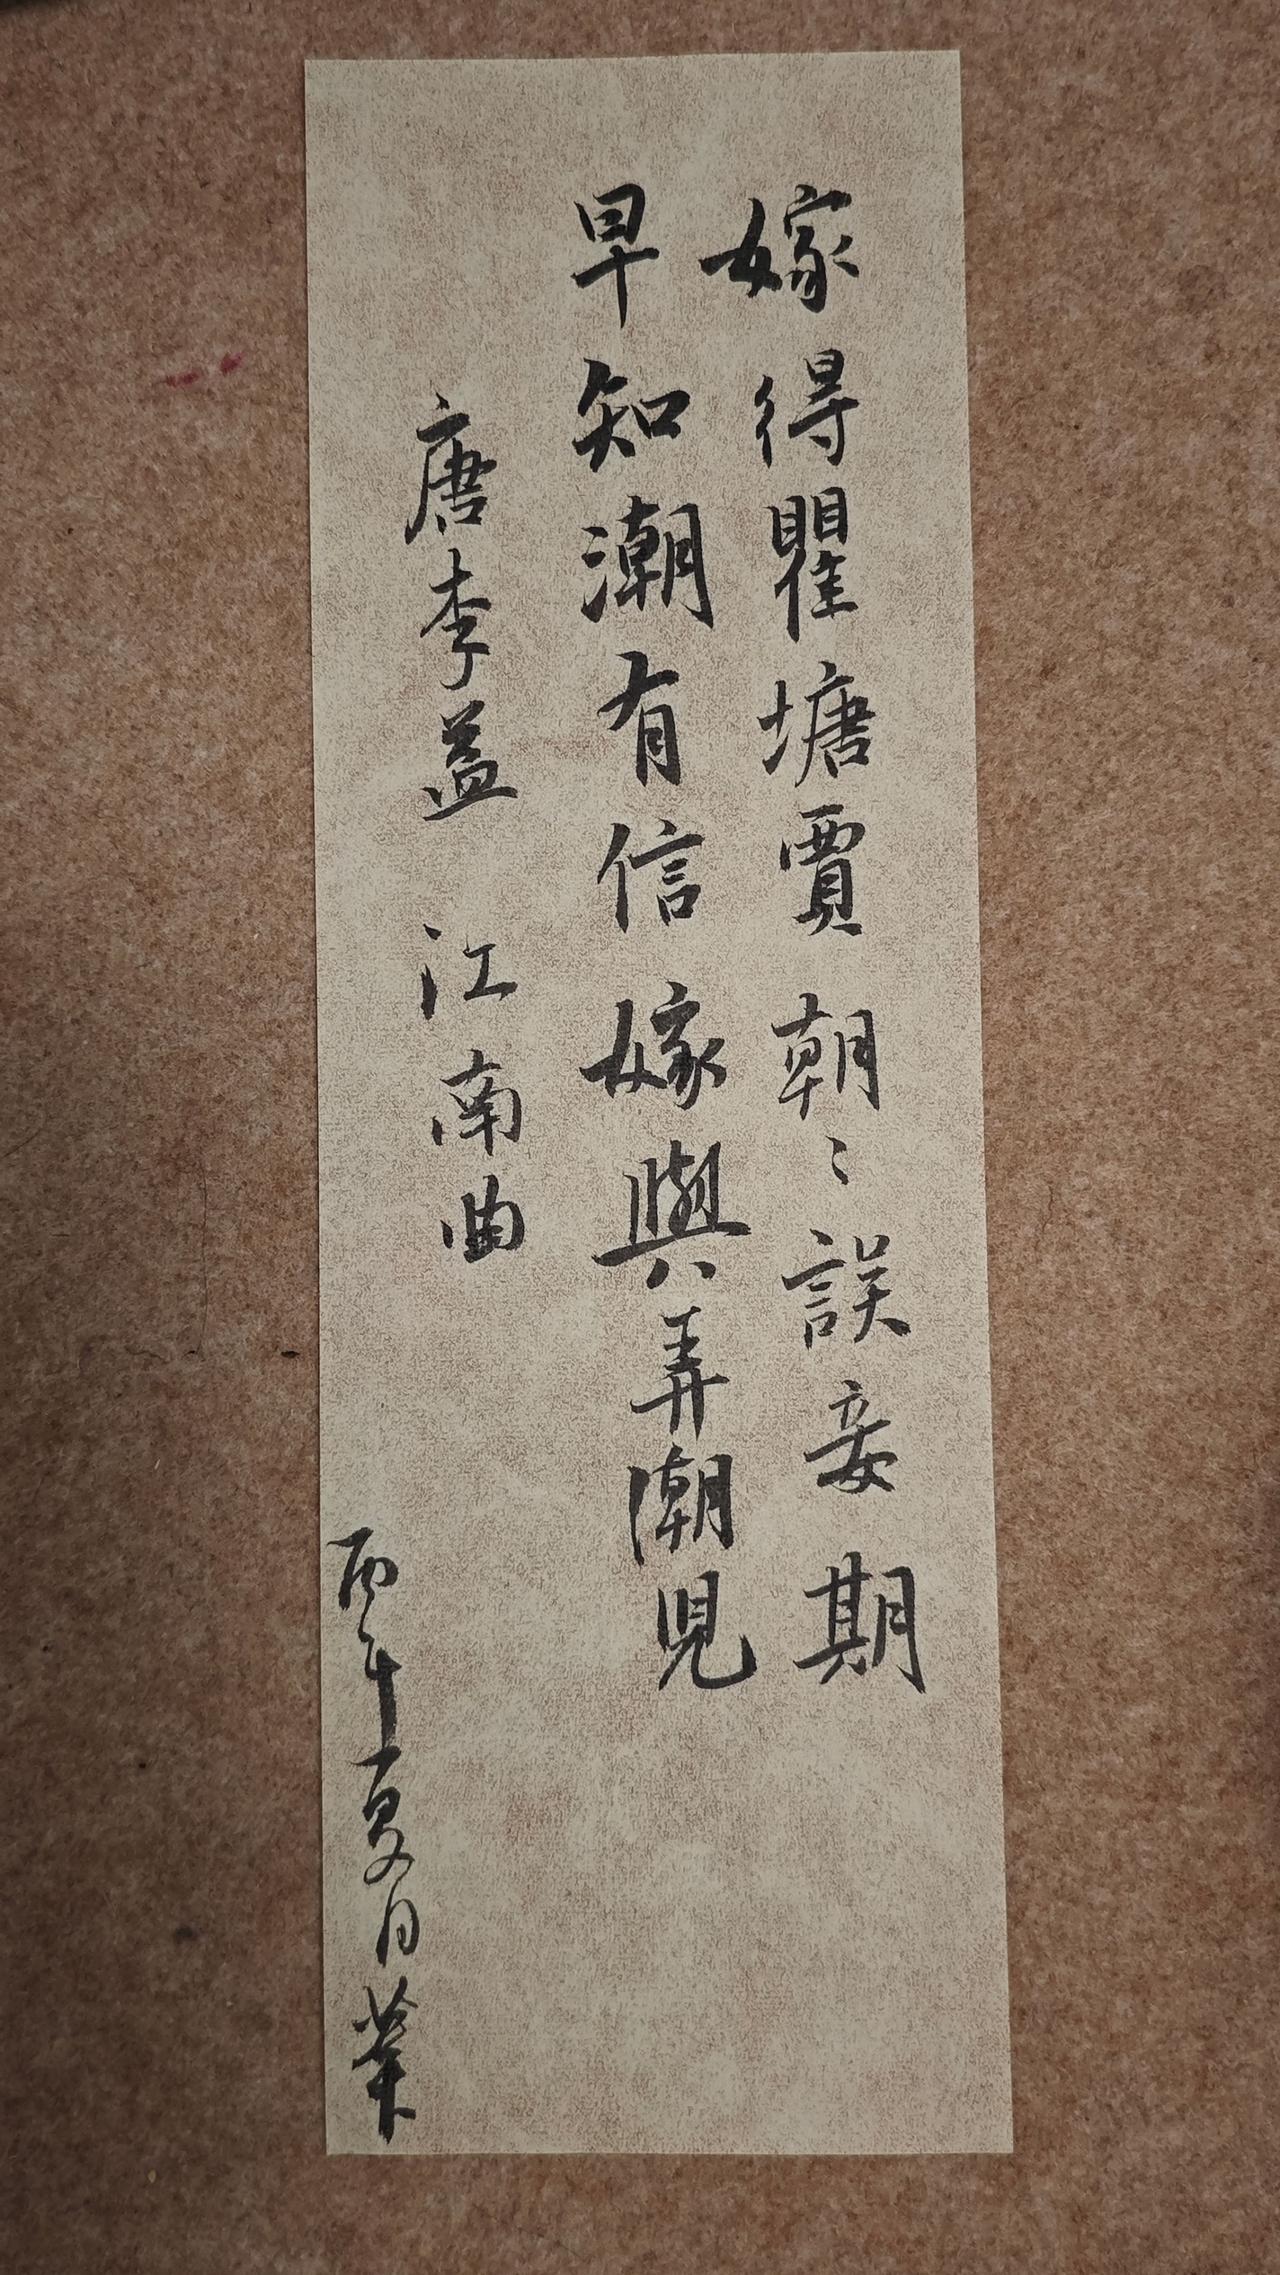 嫁得瞿塘賈朝〻誤妾期
早知潮有信嫁與弄潮兒
唐李益 江南曲
丙午夏日業